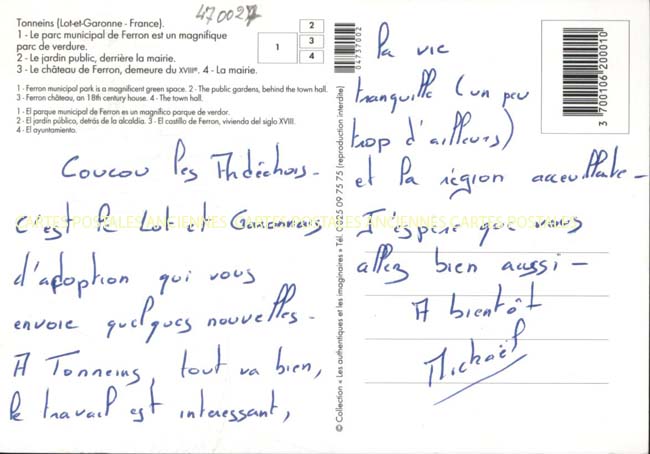 Tonneins (Lot-et-Garonne - France).
1 - Le parc municipal de Ferron est un magnifique
parc de verdure.
2 - Le jardin public, derrière la mairie.
3 - Le château de Ferron, demeure du XVIIIe. 4 - La mairie.
1 - Ferron municipal park is a magnificent green space. 2 - The public gardens, behind the town hall.
3 - Ferron château, an 18th century house. 4 - The town hall.
1 - El parque municipal de Ferron es un magnífico parque de verdor.
2 - El jardín público, detrás de la alcaldía. 3 - El castillo de Ferron, vivienda del siglo XVIII.
4 - El ayuntamiento.
470027
1
2
3
4
Coucou les Ardéchois -
c'est le Lot et Garonnais
d'adoption qui vous
envoie quelques nouvelles -
A Tonneins, tout va bien,
le travail est interessant,
© Collection « Les authentiques et les imaginaires » Tél. 0 825 09 75 75 (reproduction interdite)
04737002
la vie
tranquille (un peu
trop d'ailleurs)
et la région acceuillante -
J'espère que vous
allez bien aussi -
A bientôt
Mickaël
3 700106 200010
CARTES POSTALES ANCIENNES CARTES POSTALES ANCIENNES CARTES POSTALES